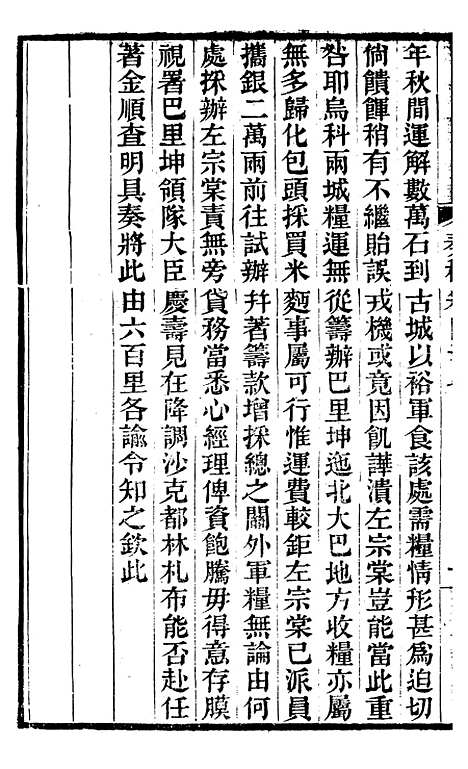 年秋間運解數萬石到古城以裕軍食該處需糧情形甚爲迫切
倘饋餫稍有不繼貽誤戎機或竟因飢譁潰左宗棠豈能當此重
咎耶烏科兩城糧運無從籌辦巴里坤迤北大巴地方收糧亦屬
無多歸化包頭採買米麵事屬可行惟運費較鉅左宗棠已派員
攜銀二萬兩前往試辦幷著籌款增採總之關外軍糧無論由何
處採辦左宗棠責無旁貸務當悉心經理俾資飽騰毋得意存膜
視署巴里坤領隊大臣慶壽見在降調沙克都林札布能否赴任
著金順查明具奏將此由六百里各諭令知之欽此